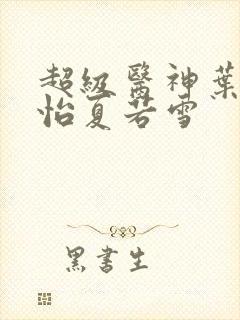 超級醫神葉
怡夏若雪
黑書生